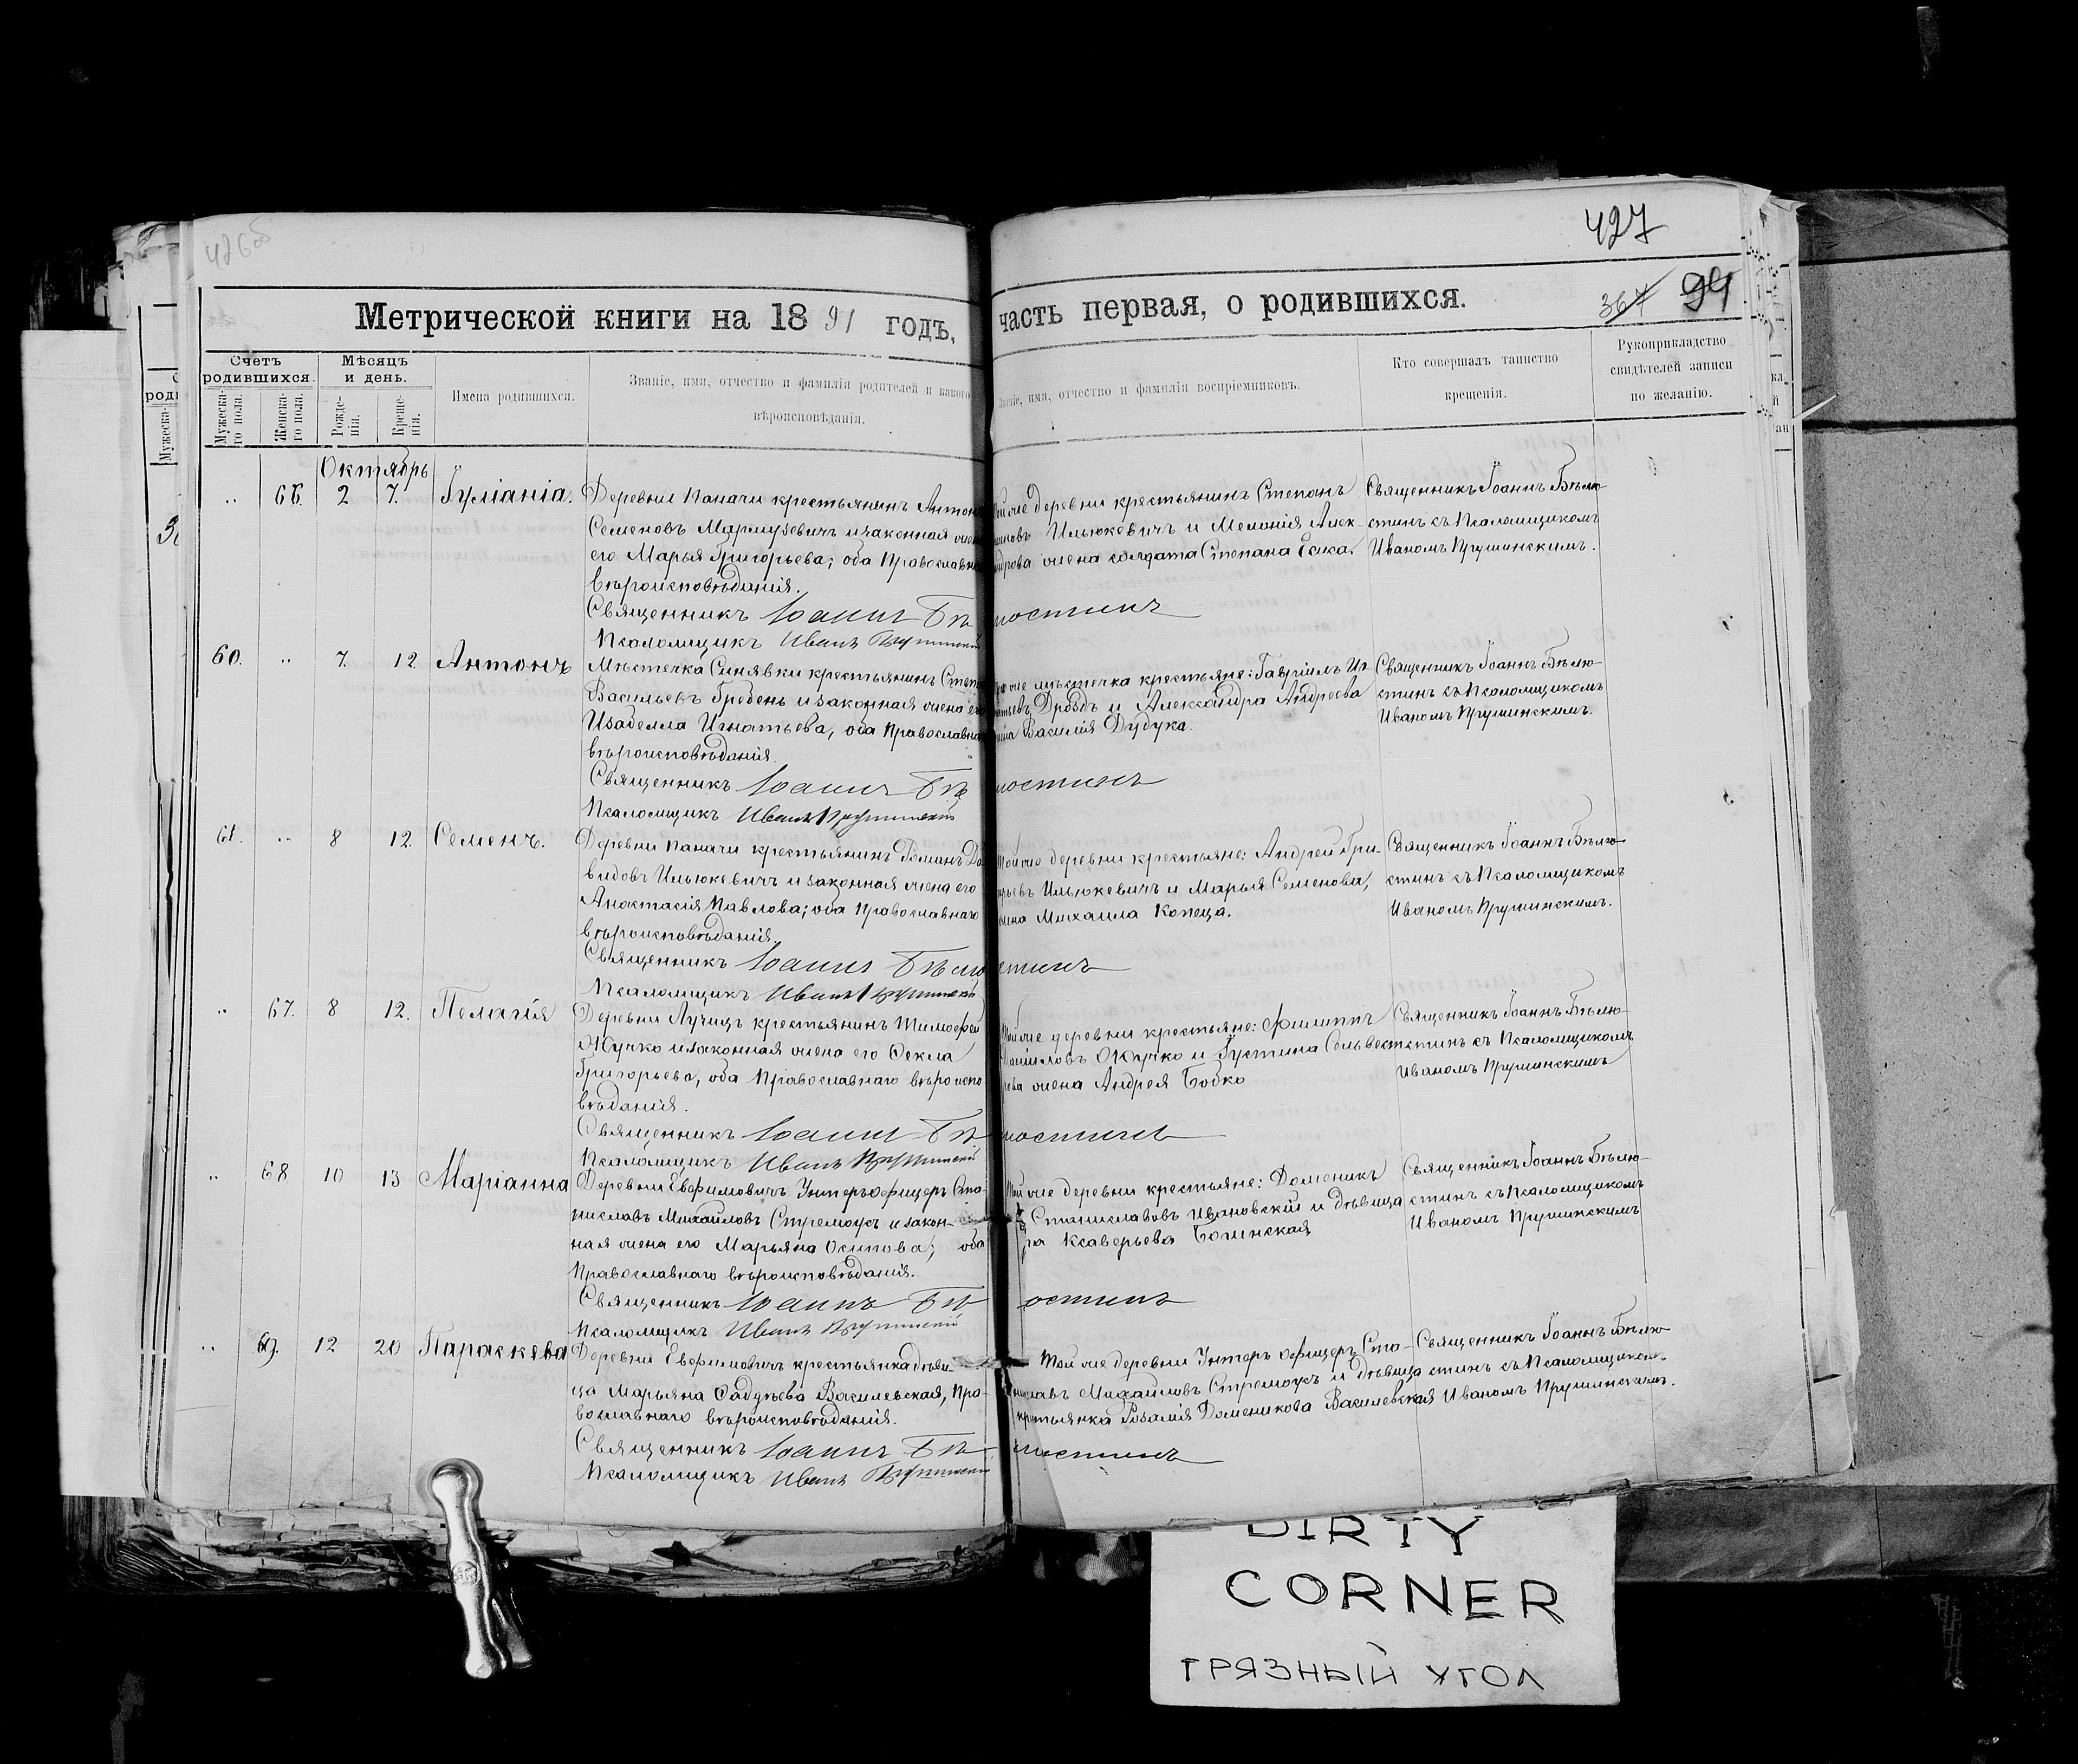 426об
427
367 94
Метрической книги на 1891 годъ, часть первая, о родившихся.
Счетъ родившихся.
Мужеска-го пола.
Женска-го пола.
Мѣсяцъ и день.
Рожде-нія.
Креще-нія.
Имена родившихся.
Званіе, имя, отчество и фамилія родителей и какого
вѣроисповѣданія.
Званіе, имя, отчество и фамилія воспріемниковъ.
Кто совершалъ таинство
крещенія.
Рукоприкладство
свидѣтелей записи
по желанію.
Октябрь
66. 2 7. Іуліанія.
Деревни Паначи крестьянинъ Антонъ
Семеновъ Мармузевичъ и законная жена
его Марья Григорьева; оба Православнаго
вѣроисповѣданія.
Священникъ Іоаннъ Бѣлюстинъ
Псаломщикъ Иванъ Прушинскій
Той же деревни крестьянинъ Степанъ
Ильюкевичъ и Меланія Алек-
ндрова жена солдата Степана Еска.
Священникъ Іоаннъ Бѣлю-
стинъ съ Псаломщикомъ
Иваномъ Прушинскимъ.
60. 7. 12 Антонъ
Мѣстечка Синявки крестьянинъ Степ
Васильевъ Гребень и законная жена его
Изабелла Игнатьева, оба Православнаго
вѣроисповѣданія.
Священникъ Іоаннъ Бѣлюстинъ
Псаломщикъ Иванъ Прушинскій
же мѣстечка крестьяне: Гавріилъ Иг-
натьевъ Дроздъ и Александра Андреева
жена Василія Дудука.
Священникъ Іоаннъ Бѣлю-
стинъ съ Псаломщикомъ
Иваномъ Прушинскимъ.
61. 8 12. Семенъ.
Деревни Паначи крестьянинъ Романъ Да-
видовъ Ильюкевичъ и законная жена его
Анастасія Павлова; оба Православнаго
вѣроисповѣданія.
Священникъ Іоаннъ Бѣлюстинъ
Псаломщикъ Иванъ Прушинскій
Той же деревни крестьяне: Андрей Гри-
рьевъ Ильюкевичъ и Марья Семенова,
жена Михаила Копеца.
Священникъ Іоаннъ Бѣлю-
стинъ съ Псаломщикомъ
Иваномъ Прушинскимъ.
67. 8 12. Пелагія
Деревни Лучицъ крестьянинъ Тимофей
Жучко и законная жена его Фекла
Григорьева, оба Православнаго вѣроиспо
вѣданія.
Священникъ Іоаннъ Бѣлюстинъ
Псаломщикъ Иванъ Прушинскій
Той же деревни крестьяне: Филиппъ
Даниловъ Жучко и Іустина Сельвест
рева жена Андрея Бобко
Священникъ Іоаннъ Бѣлю-
стинъ съ Псаломщикомъ
Иваномъ Прушинскимъ
68 10 13 Маріанна
Деревни Евфимовичъ Унтеръофицеръ Ста-
ниславъ Михайловъ Стреможъ и закон-
ная жена его Марьяна Осипова; оба
Православнаго вѣроисповѣданія.
Священникъ Іоаннъ Бѣлюстинъ
Псаломщикъ Иванъ Прушинскій
Той же деревни крестьяне: Доменикъ
Станиславовъ Ивановскій и дѣвица
Ксаверьева Богинская
Священникъ Іоаннъ Бѣлю-
стинъ съ Псаломщикомъ
Иваномъ Прушинскимъ
69. 12 20 Параскева
Деревни Евфимовичъ крестьянка дѣви-
ца Марьяна Фадѣева Василевская, Пра-
вославнаго вѣроисповѣданія.
Священникъ Іоаннъ Бѣлюстинъ
Псаломщикъ Иванъ Прушинскій
Той же деревни Унтеръ офицеръ Ста-
ниславъ Михайловъ Стреможъ и дѣвица
крестьянка Розалія Доменикова Василевская
Священникъ Іоаннъ Бѣлю-
стинъ съ Псаломщикомъ
Иваномъ Прушинскимъ.
DIRTY
CORNER
ГРЯЗНЫЙ УГОЛ